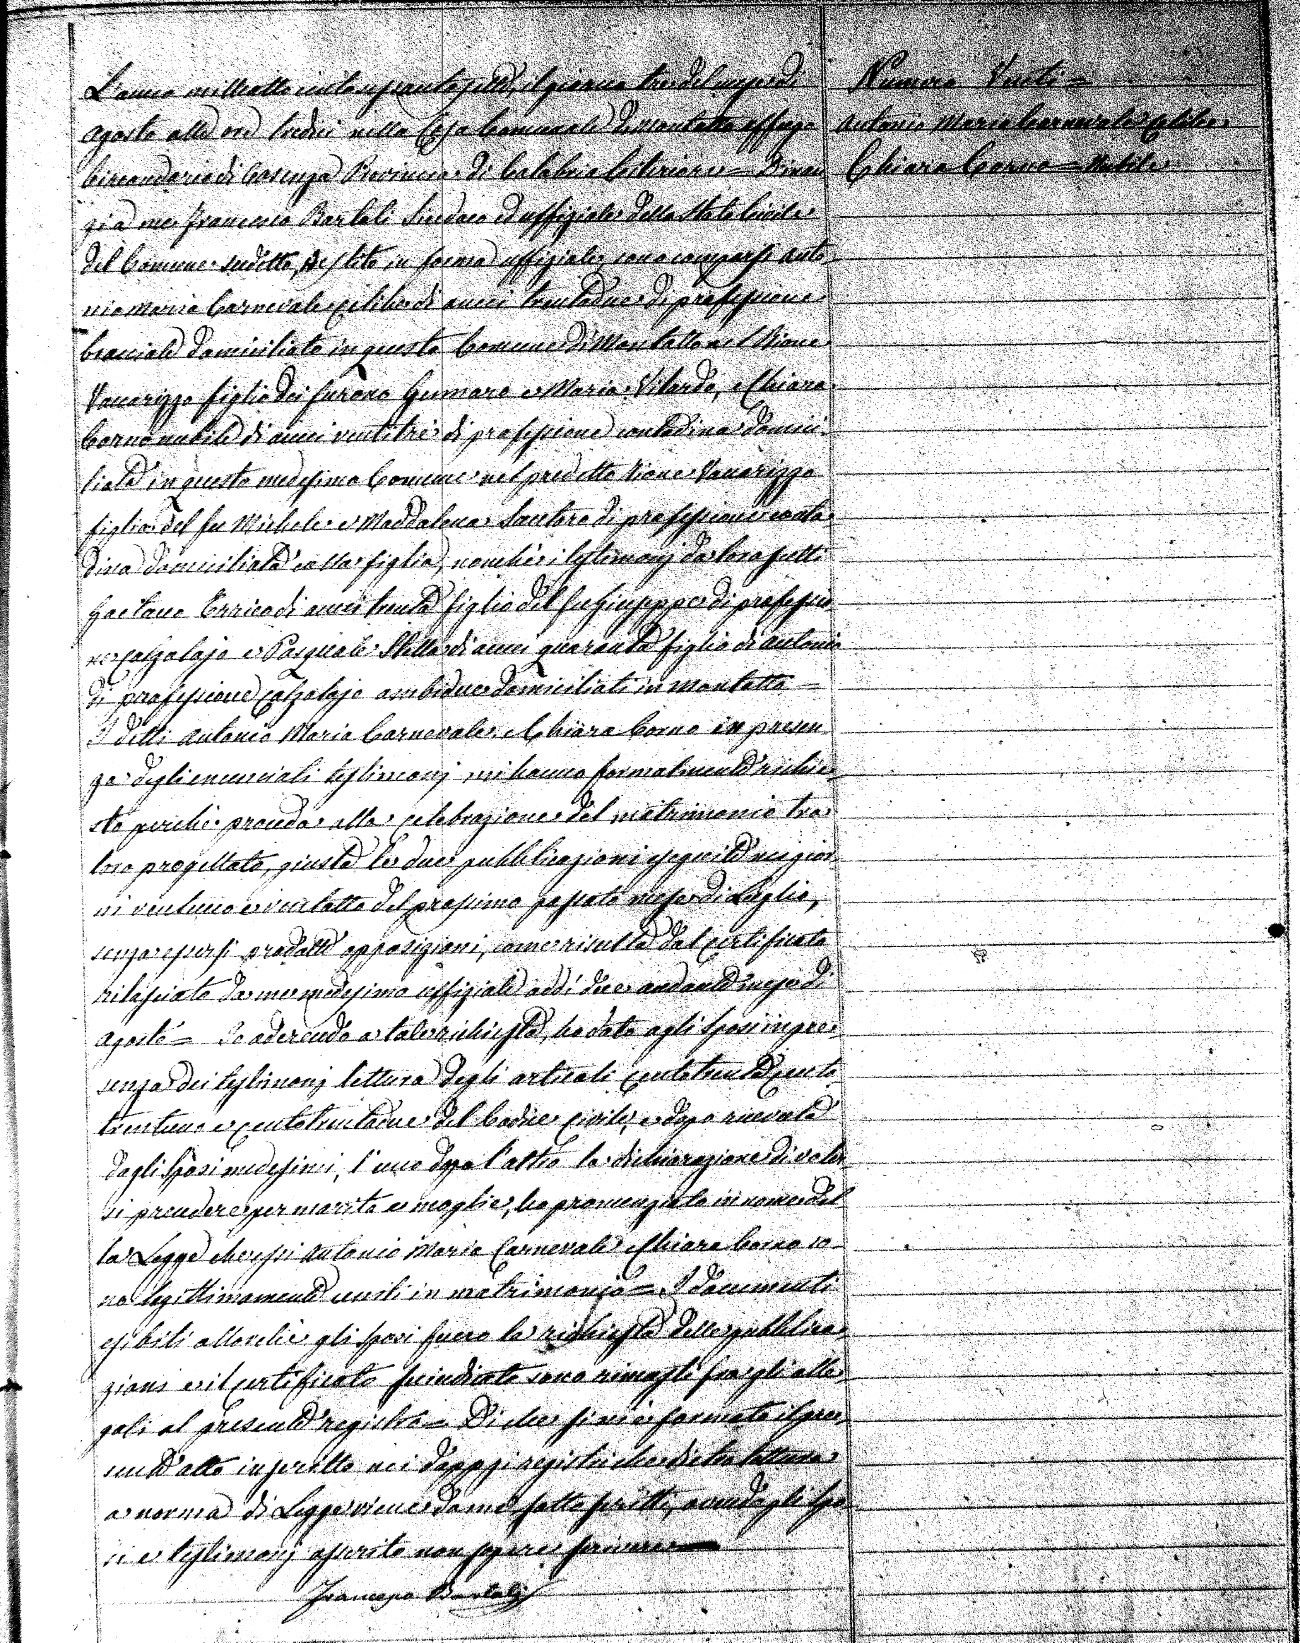 L'anno mille otto cento sessanta sette, il giorno tre del mese di
Agosto alle ore tredici nella Casa Comunale di Montalto Uffugo
Circondario di Cosenza Provincia di Calabria Citeriore = Dinan
zi a me Francesco Bartoli Sindaco ed uffiziale dello Stato Civile
del Comune sudetto, vestito in forma uffiziale, sono comparsi Anto
nio Maria Carnevale, celibe di anni trentadue di professione
bracciale domiciliato in questo Comune di Montalto nel Rione
Vaccarizzo figlio dei furono Gennaro e Maria Vilardo, e Chiara
Corno nubile di anni ventitre di professione contadina domici
liata in questo medesimo Comune nel predetto Rione Vaccarizzo
figlia del fu Michele e Maddalena Santoro di professione conta
dina domiciliata colla figlia, nonché i testimonj da loro scelti
Gaetano Errico di anni trenta figlio del fu Giuseppe di professio
ne calzolajo e Pasquale Stella di anni quaranta figlio di Antonio
di professione calzolajo ambidue domiciliati in Montalto =
I detti Antonio Maria Carnevale, e Chiara Corno in presen
za degli enunciati testimonj mi hanno formalmente richie
sto perché proceda alla celebrazione del matrimonio tra
loro progettato, giusta le due pubblicazioni eseguite nei gior
ni ventuno e ventotto del prossimo passato mese di Luglio,
senza essersi prodotte opposizioni, come risulta dal certificato
rilasciato da me medesimo uffiziale addì due andante mese di
Agosto = Io aderendo a tale richiesta, ho dato agli sposi in pre
senza dei testimonj lettura degli articoli centotrenta, cento
trentuno e centotrentadue del Codice Civile, e dopo ricevuta
dagli Sposi medesimi, l'uno dopo l'altro la dichiarazione di voler
si prendere per marito e moglie, ho pronunziato in nome del
la Legge che essi Antonio Maria Carnevale e Chiara Corno so
no legittimamente uniti in matrimonio = I documenti
esibiti allorché gli sposi fecero la richiesta delle pubblica
zioni e il certificato suindicato sono rimasti fra gli alle
gati al presente registro = Di che si è formato il pre
sente atto inscritto nei doppj registri che dietro lettura
a norma di Legge viene da me sottoscritto, avendo gli Spo
si e testimonj asserito non sapere scrivere
Francesco Bartoli
Numero Venti =
Antonio Maria Carnevale Celibe
Chiara Corno = Nubile